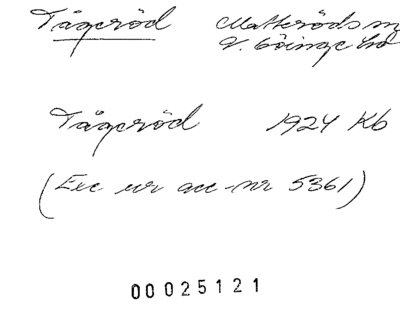 Tågeröd Matteröds sn
V. Göinge hd
Tågeröd 1924 Kb
(Exc ur acc-nr 5361)
00025121